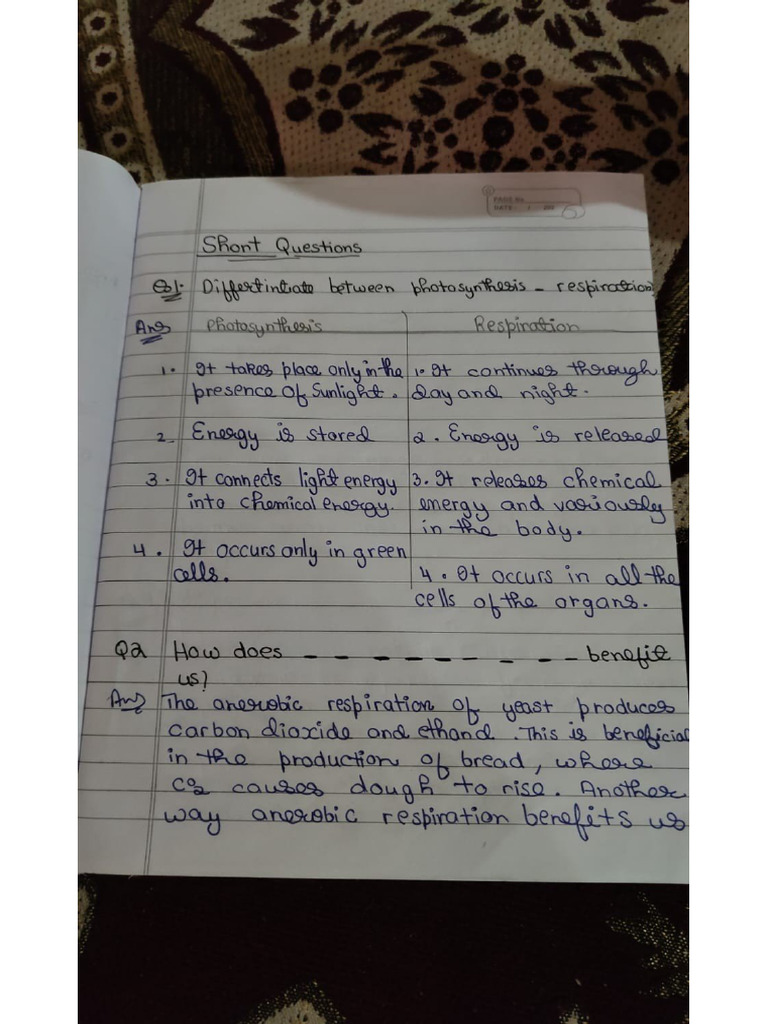 PAGE No.
DATE: / /202
Short Questions
Q1. Differtintiate between photosynthesis - respiration?
Ans Photosynthesis Respiration
1. It takes place only in the 1. It continues through
presence of Sunlight. day and night.
2. Energy is stored 2. Energy is released
3. It connects light energy 3. It releases chemical
into chemical energy. energy and variously
in the body.
4. It occurs only in green
cells. 4. It occurs in all the
cells of the organs.
Q2 How does _ _ _ _ _ _ _ _ _ benefit
us?
Ans The anerobic respiration of yeast produces
carbon dioxide and ethanol. This is beneficial
in the production of bread, where
CO2 causes dough to rise. Another
way anerobic respiration benefits us